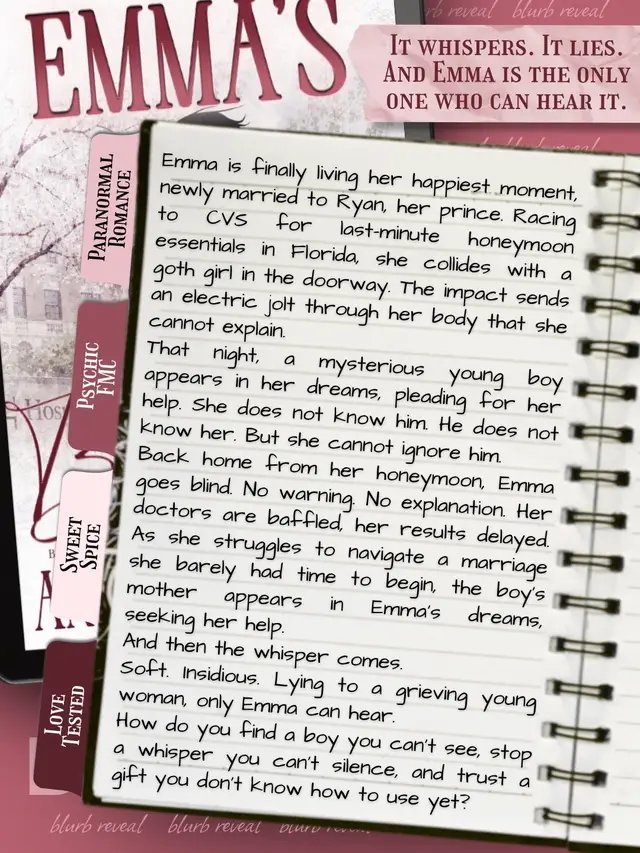 EMMA'S
blurb reveal
IT WHISPERS. IT LIES.
AND EMMA IS THE ONLY
ONE WHO CAN HEAR IT.
PARANORMAL
ROMANCE
PSYCHIC
FMC
SWEET
SPICE
LOVE
TESTED
Emma is finally living her happiest moment,
newly married to Ryan, her prince. Racing
to CVS for last-minute honeymoon
essentials in Florida, she collides with a
goth girl in the doorway. The impact sends
an electric jolt through her body that she
cannot explain.
That night, a mysterious young boy
appears in her dreams, pleading for her
help. She does not know him. He does not
know her. But she cannot ignore him.
Back home from her honeymoon, Emma
goes blind. No warning. No explanation. Her
doctors are baffled, her results delayed.
As she struggles to navigate a marriage
she barely had time to begin, the boy's
mother appears in Emma's dreams,
seeking her help.
And then the whisper comes.
Soft. Insidious. Lying to a grieving young
woman, only Emma can hear.
How do you find a boy you can't see, stop
a whisper you can't silence, and trust a
gift you don't know how to use yet?
blurb reveal blurb reveal blurb reveal